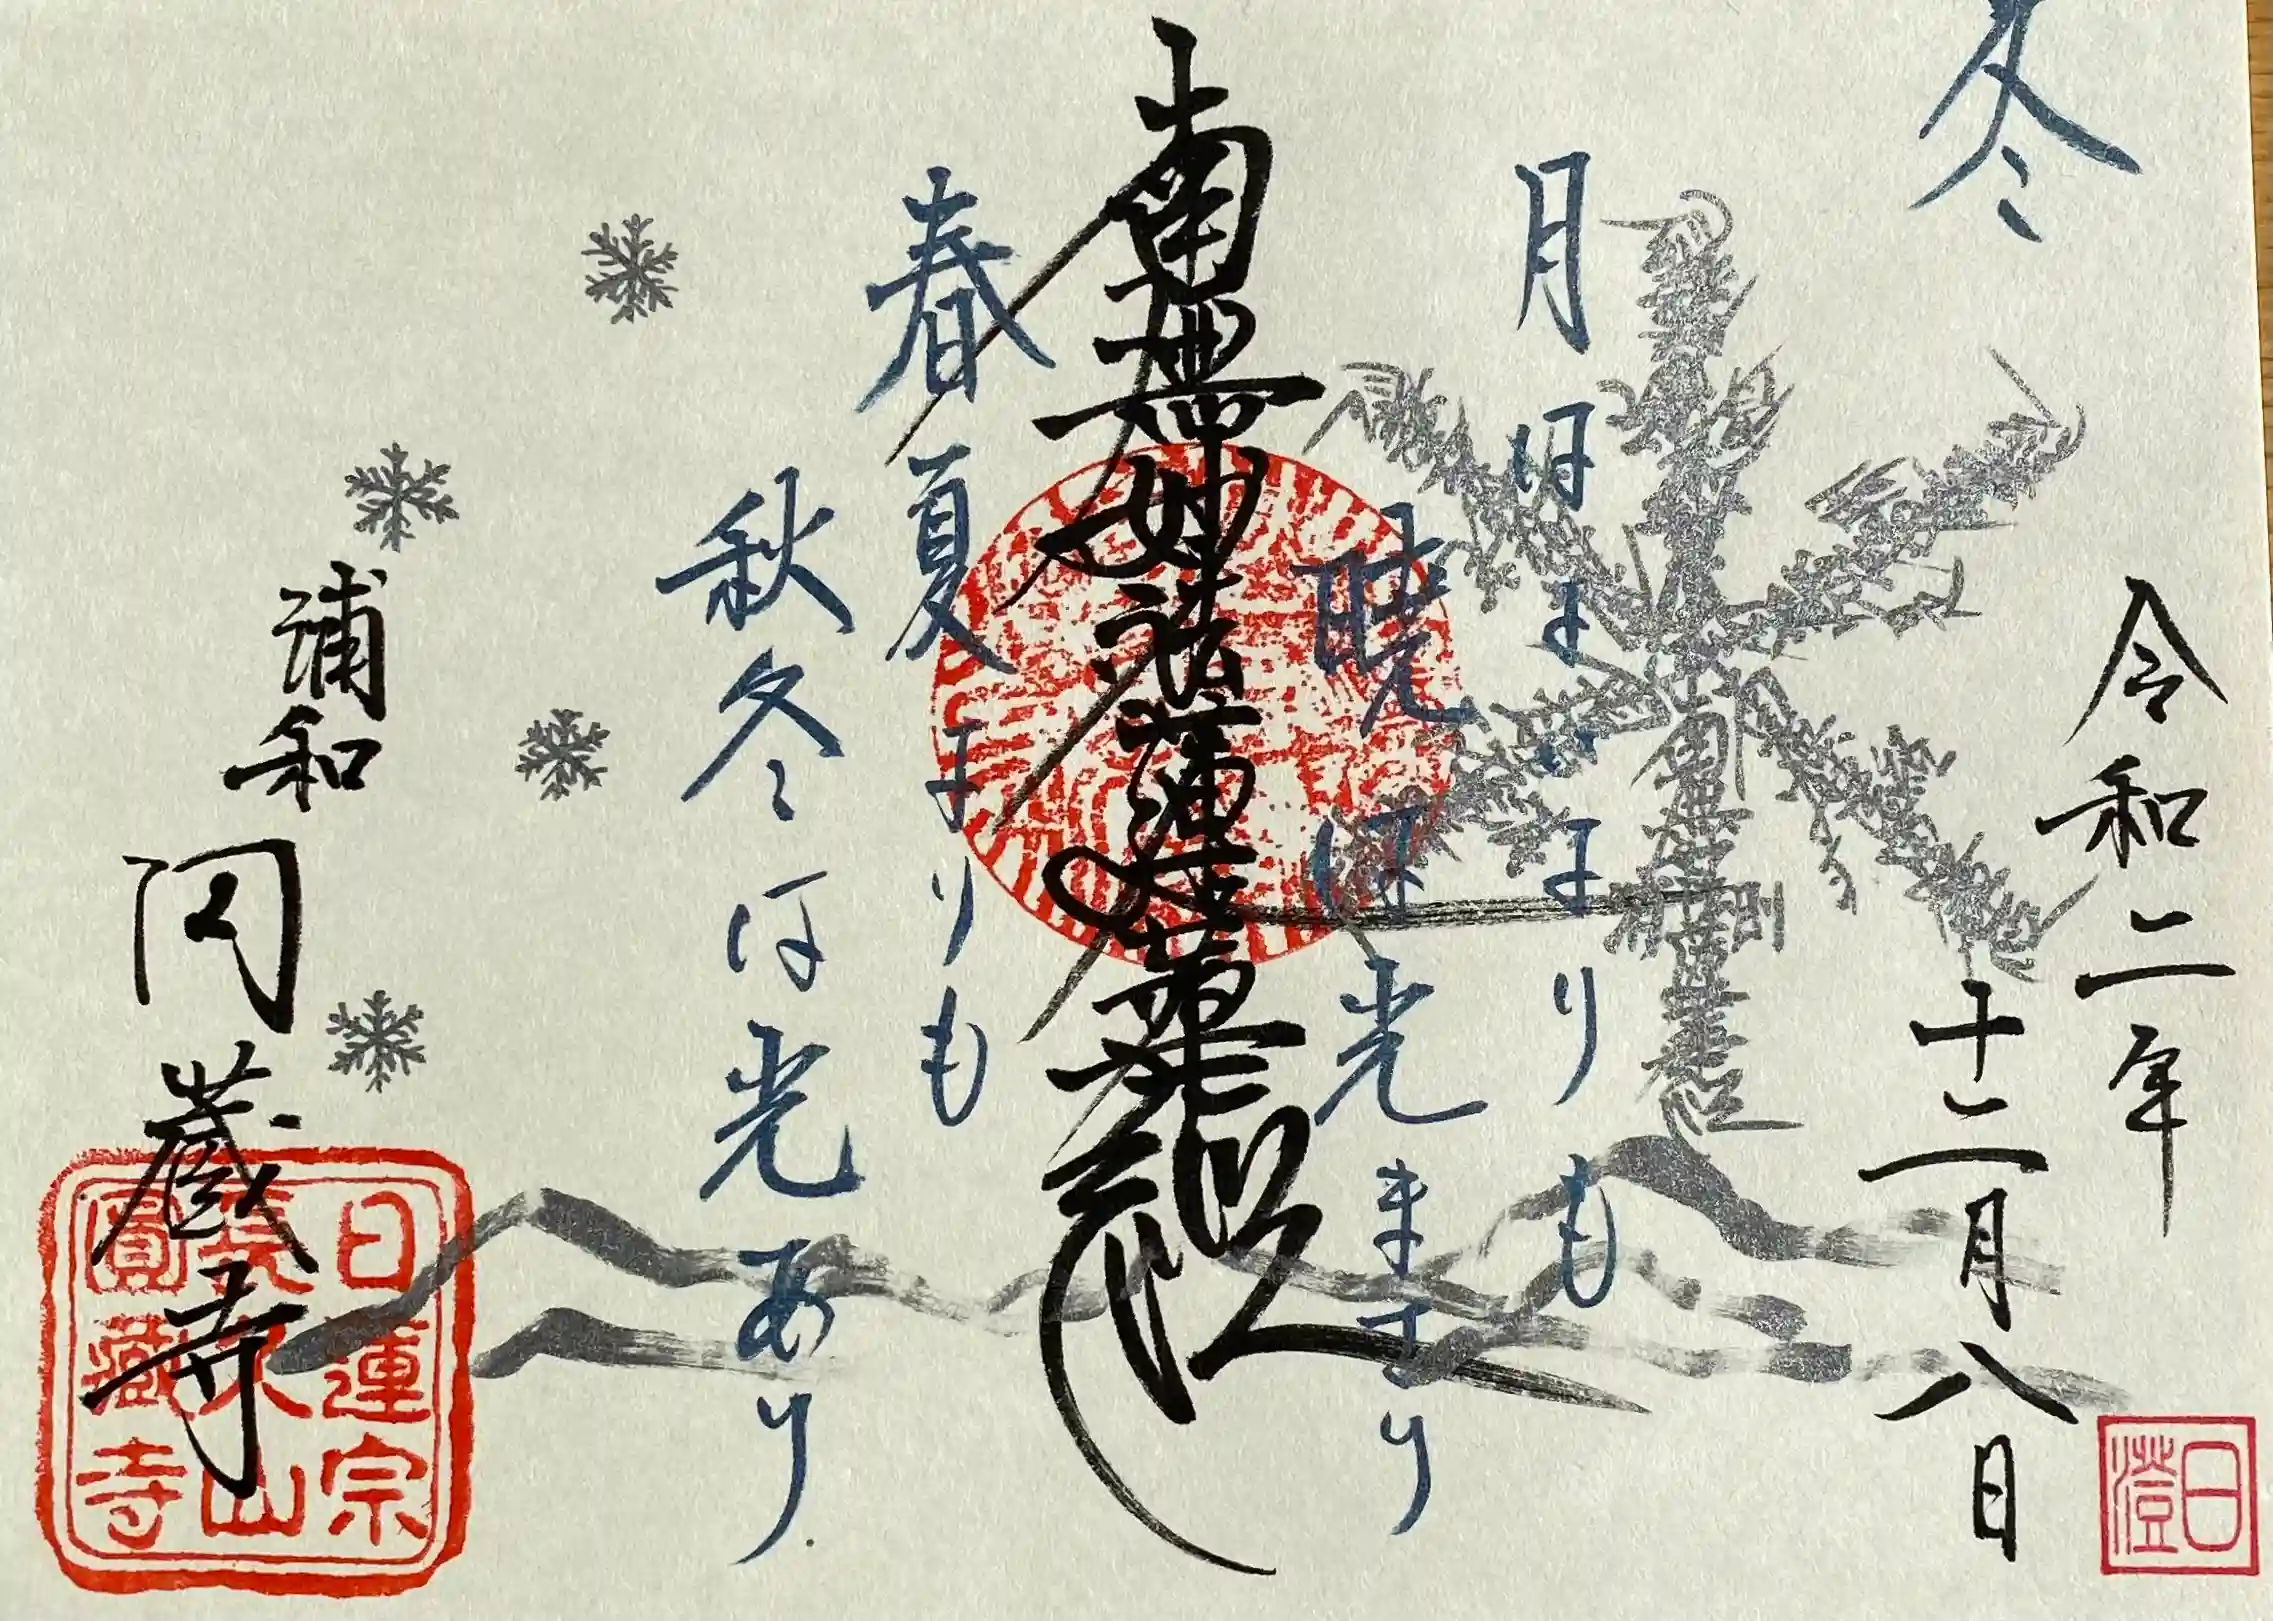 冬
令和二年
十二月八日
日澄
月はよいよりも
暁は光まさり
南無妙法蓮華経
春夏よりも
秋冬は光あり
浦和
円蔵寺
日蓮宗
長久山
圓藏寺